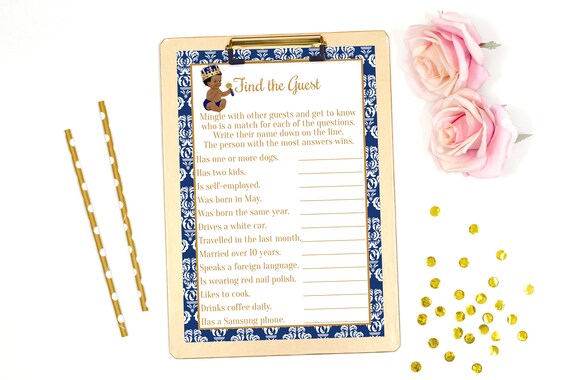 Find the Guest
Mingle with other guests and get to know
who is a match for each of the questions.
Write their name down on the line.
The person with the most answers wins.
Has one or more dogs.
Has two kids.
Is self-employed.
Was born in May.
Was born the same year.
Drives a white car.
Travelled in the last month.
Married over 10 years.
Speaks a foreign language.
Is wearing red nail polish.
Likes to cook.
Drinks coffee daily.
Has a Samsung phone.